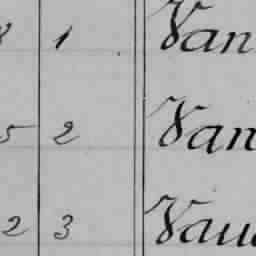 8 1 Van
5 2 Van
2 3 Vau